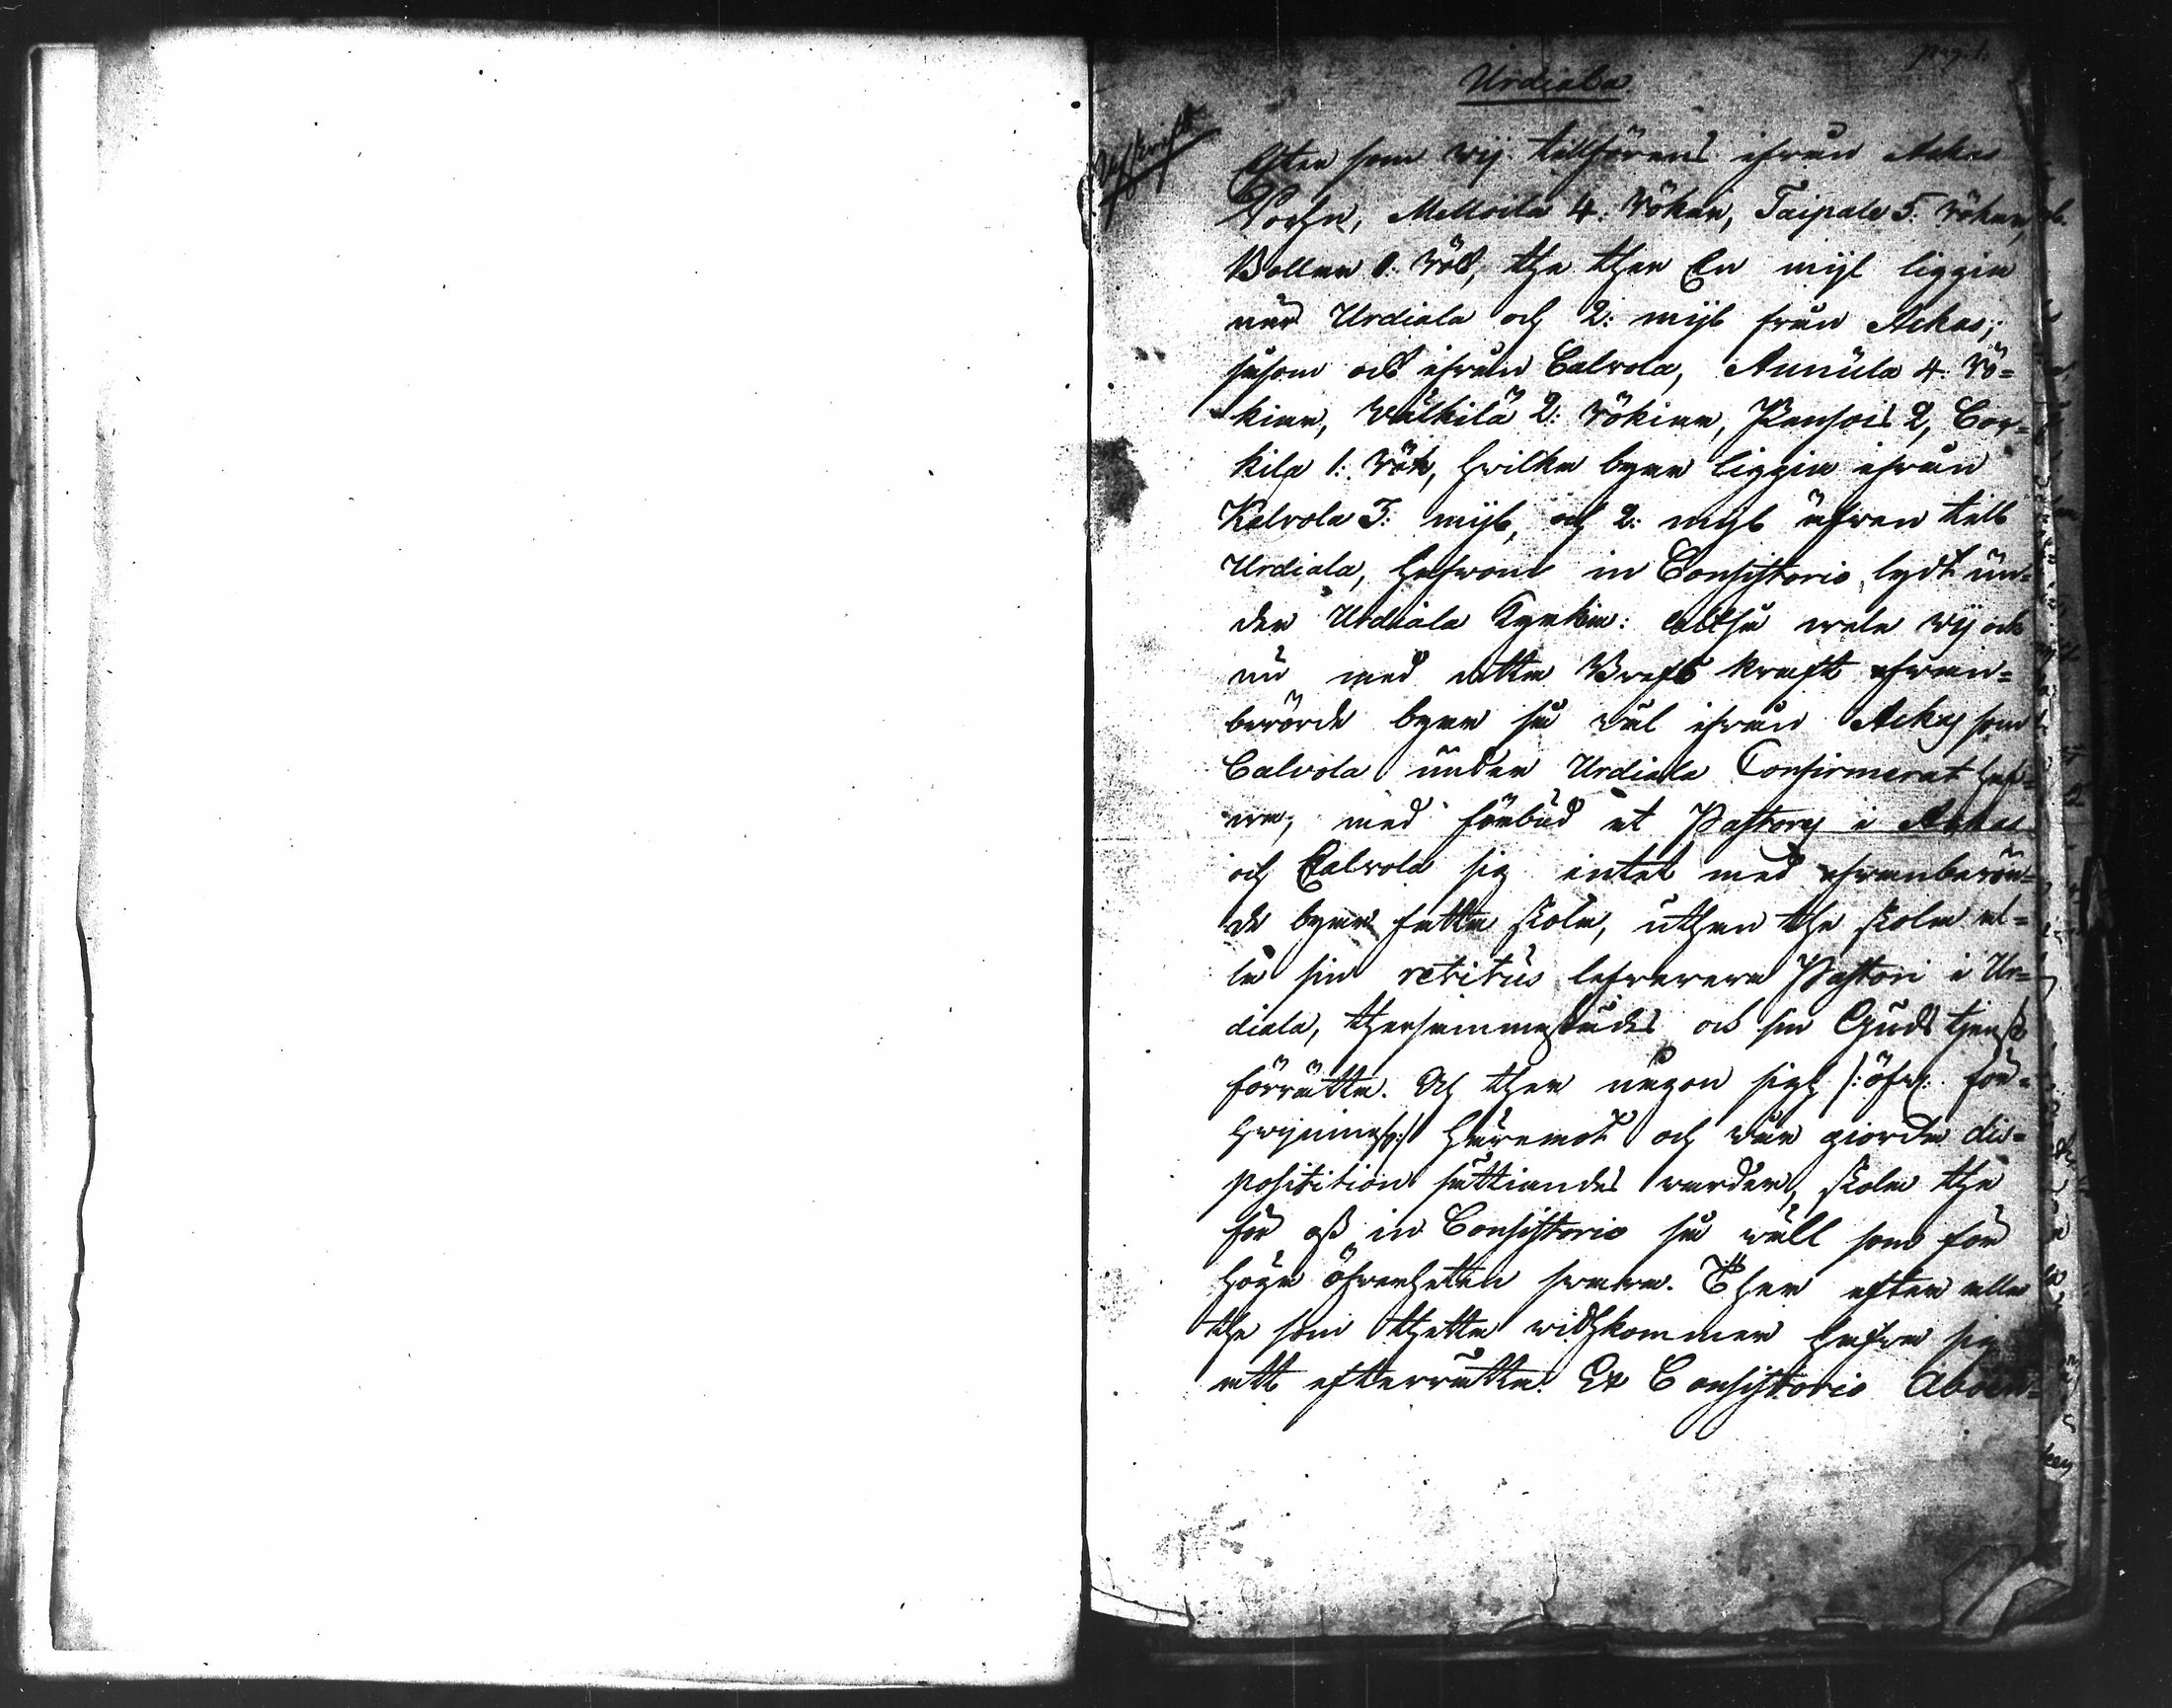 pag. 1.
Urdiala
Afskrift
Efter som wij tillförens ifrån Ackas
Sochn, Mellola 4: rökar, Taipale 5: rökar,
1: rök, the ther En mijl liggia
när Urdiala och 2: mijl från Ackas;
såsom ock ifrån Calvola, Annula 4: rö=
kiar, Wälkilä 2: rökiar, 2, Cor=
kila 1: rök, hvilka byar liggia ifrån
Kalvola 3: mijl, och 2: mijl äfven till
Urdiala, hafwom in Consistorio lagt un=
der Urdiala Kyrkia: altså wele wij ock
nu med detta Brefs kraft ofwan=
berörde byar så wäl ifrån Ackas som
Calvola under Urdiala Confirmerat haf=
wa, med förbud at Pastores i Ackas
och Calvola sig intet med ofwanberör=
de byar fatta skola, uthan the skola al=
la sin retitus lefwerera Pastori i Ur=
diala, thersammastädes ock sin Guds tjenst
förrätta. Och ther någon sigh /: öfw: för=
:/ häremot och wår giorda dis=
position sättiandes warder, skola the
för oss in Consistorio så wäll som för
höga öfwerheten swara. Ther efter alla
the som thetta widhkommer hafwa sig
att efterrätta. Ex Consistorio Aboen=